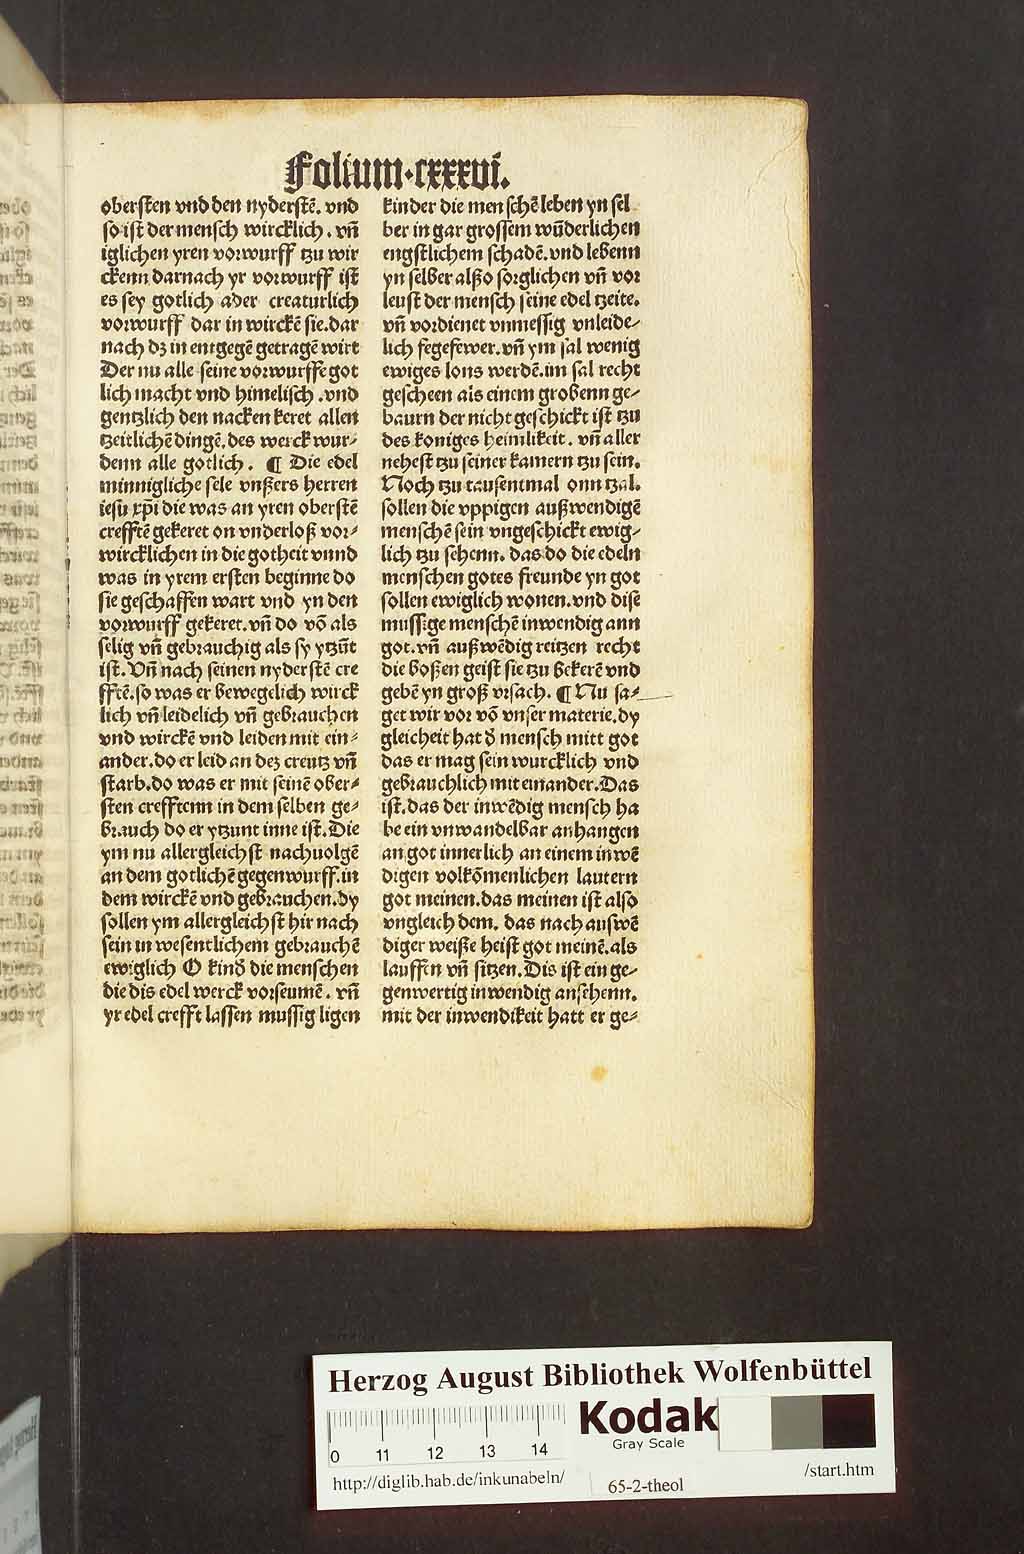 Folium·cxxxvi.
obersten vnd den nyderstē. vnd
so ist der mensch wircklich. vn̄
iglichen yren vorwurff tzu wir
ckenn darnach yr vorwurff ist
es sey gotlich ader creaturlich
vorwurff dar in wirckē sie.dar
nach dz in entgegē getragē wirt
Der nu alle seine vorwurffe got
lich macht vnd himelisch .vnd
gentzlich den nacken keret allen
tzeitlichē dingē.des werck wur⸗
denn alle gotlich. ¶ Die edel
minnigliche sele vnßers herren
iesu xp̄i die was an yren oberstē
crefftē gekeret on vnderloß vor⸗
wircklichen in die gotheit vnnd
was in yrem ersten beginne do
sie geschaffen wart vnd yn den
vorwurff gekeret.vn̄ do vō als
selig vn̄ gebrauchig als sy ytzūt
ist. Vn̄ nach seinen nyderstē cre
fftē.so was er bewegelich wirck
lich vn̄ leidelich vn̄ gebrauchen
vnd wirckē vnd leiden mit ein⸗
ander.do er leid an dez creutz vn̄
starb.do was er mit seinē ober⸗
sten crefftenn in dem selben ge⸗
brauch do er ytzunt inne ist.Die
ym nu allergleichst nachuolgē
an dem gotlichē gegenwurff.in
dem wirckē vnd gebrauchen.dy
sollen ym allergleichst hir nach
sein in wesentlichem gebrauchē
ewiglich O kinđ die menschen
die dis edel werck vorseumē. vn̄
yr edel crefft lassen mussig ligen
kinder die menschē leben yn sel
ber in gar grossem wūderlichen
engstlichem schadē.vnd lebenn
yn selber alßo sorglichen vn̄ vor
leust der mensch seine edel tzeite.
vn̄ vordienet vnmessig vnleide⸗
lich fegefewer.vn̄ ym sal wenig
ewiges lons werdē.im sal recht
gescheen als einem grobenn ge⸗
baurn der nicht geschickt ist tzu
des koniges heimlikeit. vn̄ aller
nehest tzu seiner kamern tzu sein.
Noch tzu tausentmal onn tzal.
sollen die vppigen außwendigē
menschē sein vngeschickt ewig⸗
lich tzu sehenn. das do die edeln
menschen gotes freunde yn got
sollen ewiglich wonen.vnd dise
mussige menschē inwendig ann
got.vn̄ außwēdig reitzen recht
die boßen geist sie tzu bekerē vnd
gebē yn groß vrsach. ¶ Nu sa⸗
get wir vor vō vnser materie.dy
gleicheit hat đ mensch mitt got
das er mag sein wurcklich vnd
gebrauchlich mit einander.Das
ist.das der inwēdig mensch ha
be ein vnwandelbar anhangen
an got innerlich an einem inwē
digen volkōmenlichen lautern
got meinen.das meinen ist also
vngleich dem. das nach auswē
diger weiße heist got meinē.als
lauffen vn̄ sitzen.Dis ist ein ge⸗
genwertig inwendig ansehenn.
mit der inwendikeit hatt er ge⸗
Herzog August Bibliothek Wolfenbüttel
Kodak
Gray Scale
0 11 12 13 14
http://diglib.hab.de/inkunabeln/
65-2-theol
/start.htm